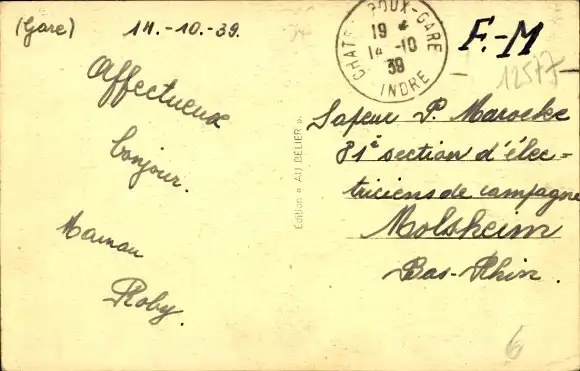 (Gare) 14.-10.-39.
Affectueux
bonjour.
Maman
Roby.
Edition « AU BÉLIER ».
CHAT ROUX-GARE
19 *
14 -10
39
INDRE
F.-M
12577
Sapeur P. Marocke
81e section d'élec-
triciens de campagne
Molsheim
Bas-Rhin.
6